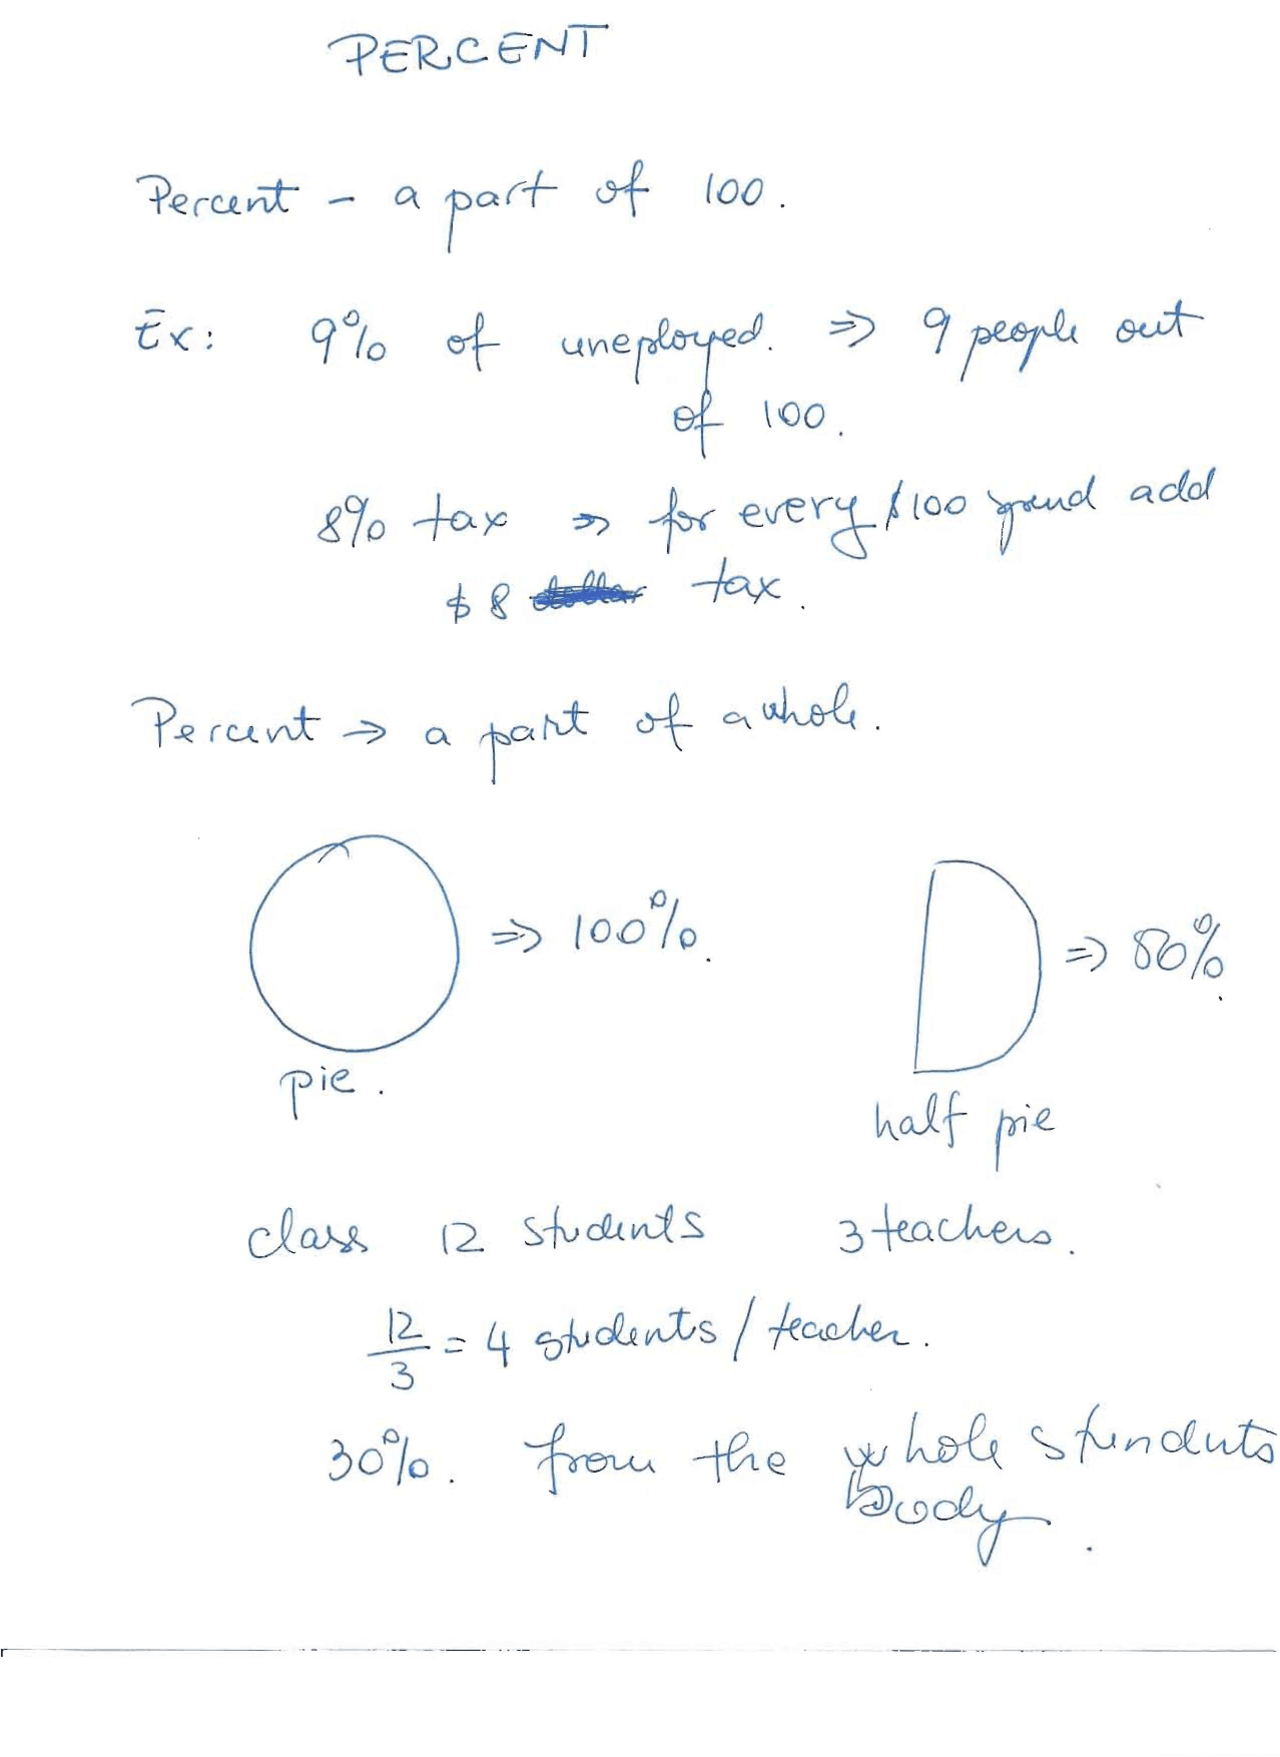 PERCENT
Percent - a part of 100.
Ex: 9% of uneployed. => 9 people out
of 100.
8% tax => for every $100 spend add
$8 dollar tax.
Percent => a part of a whole.
=> 100%.
=> 50%.
pie.
half pie
class 12 students 3 teachers.
12/3 = 4 students / teacher.
30%. from the whole stunduts
body.